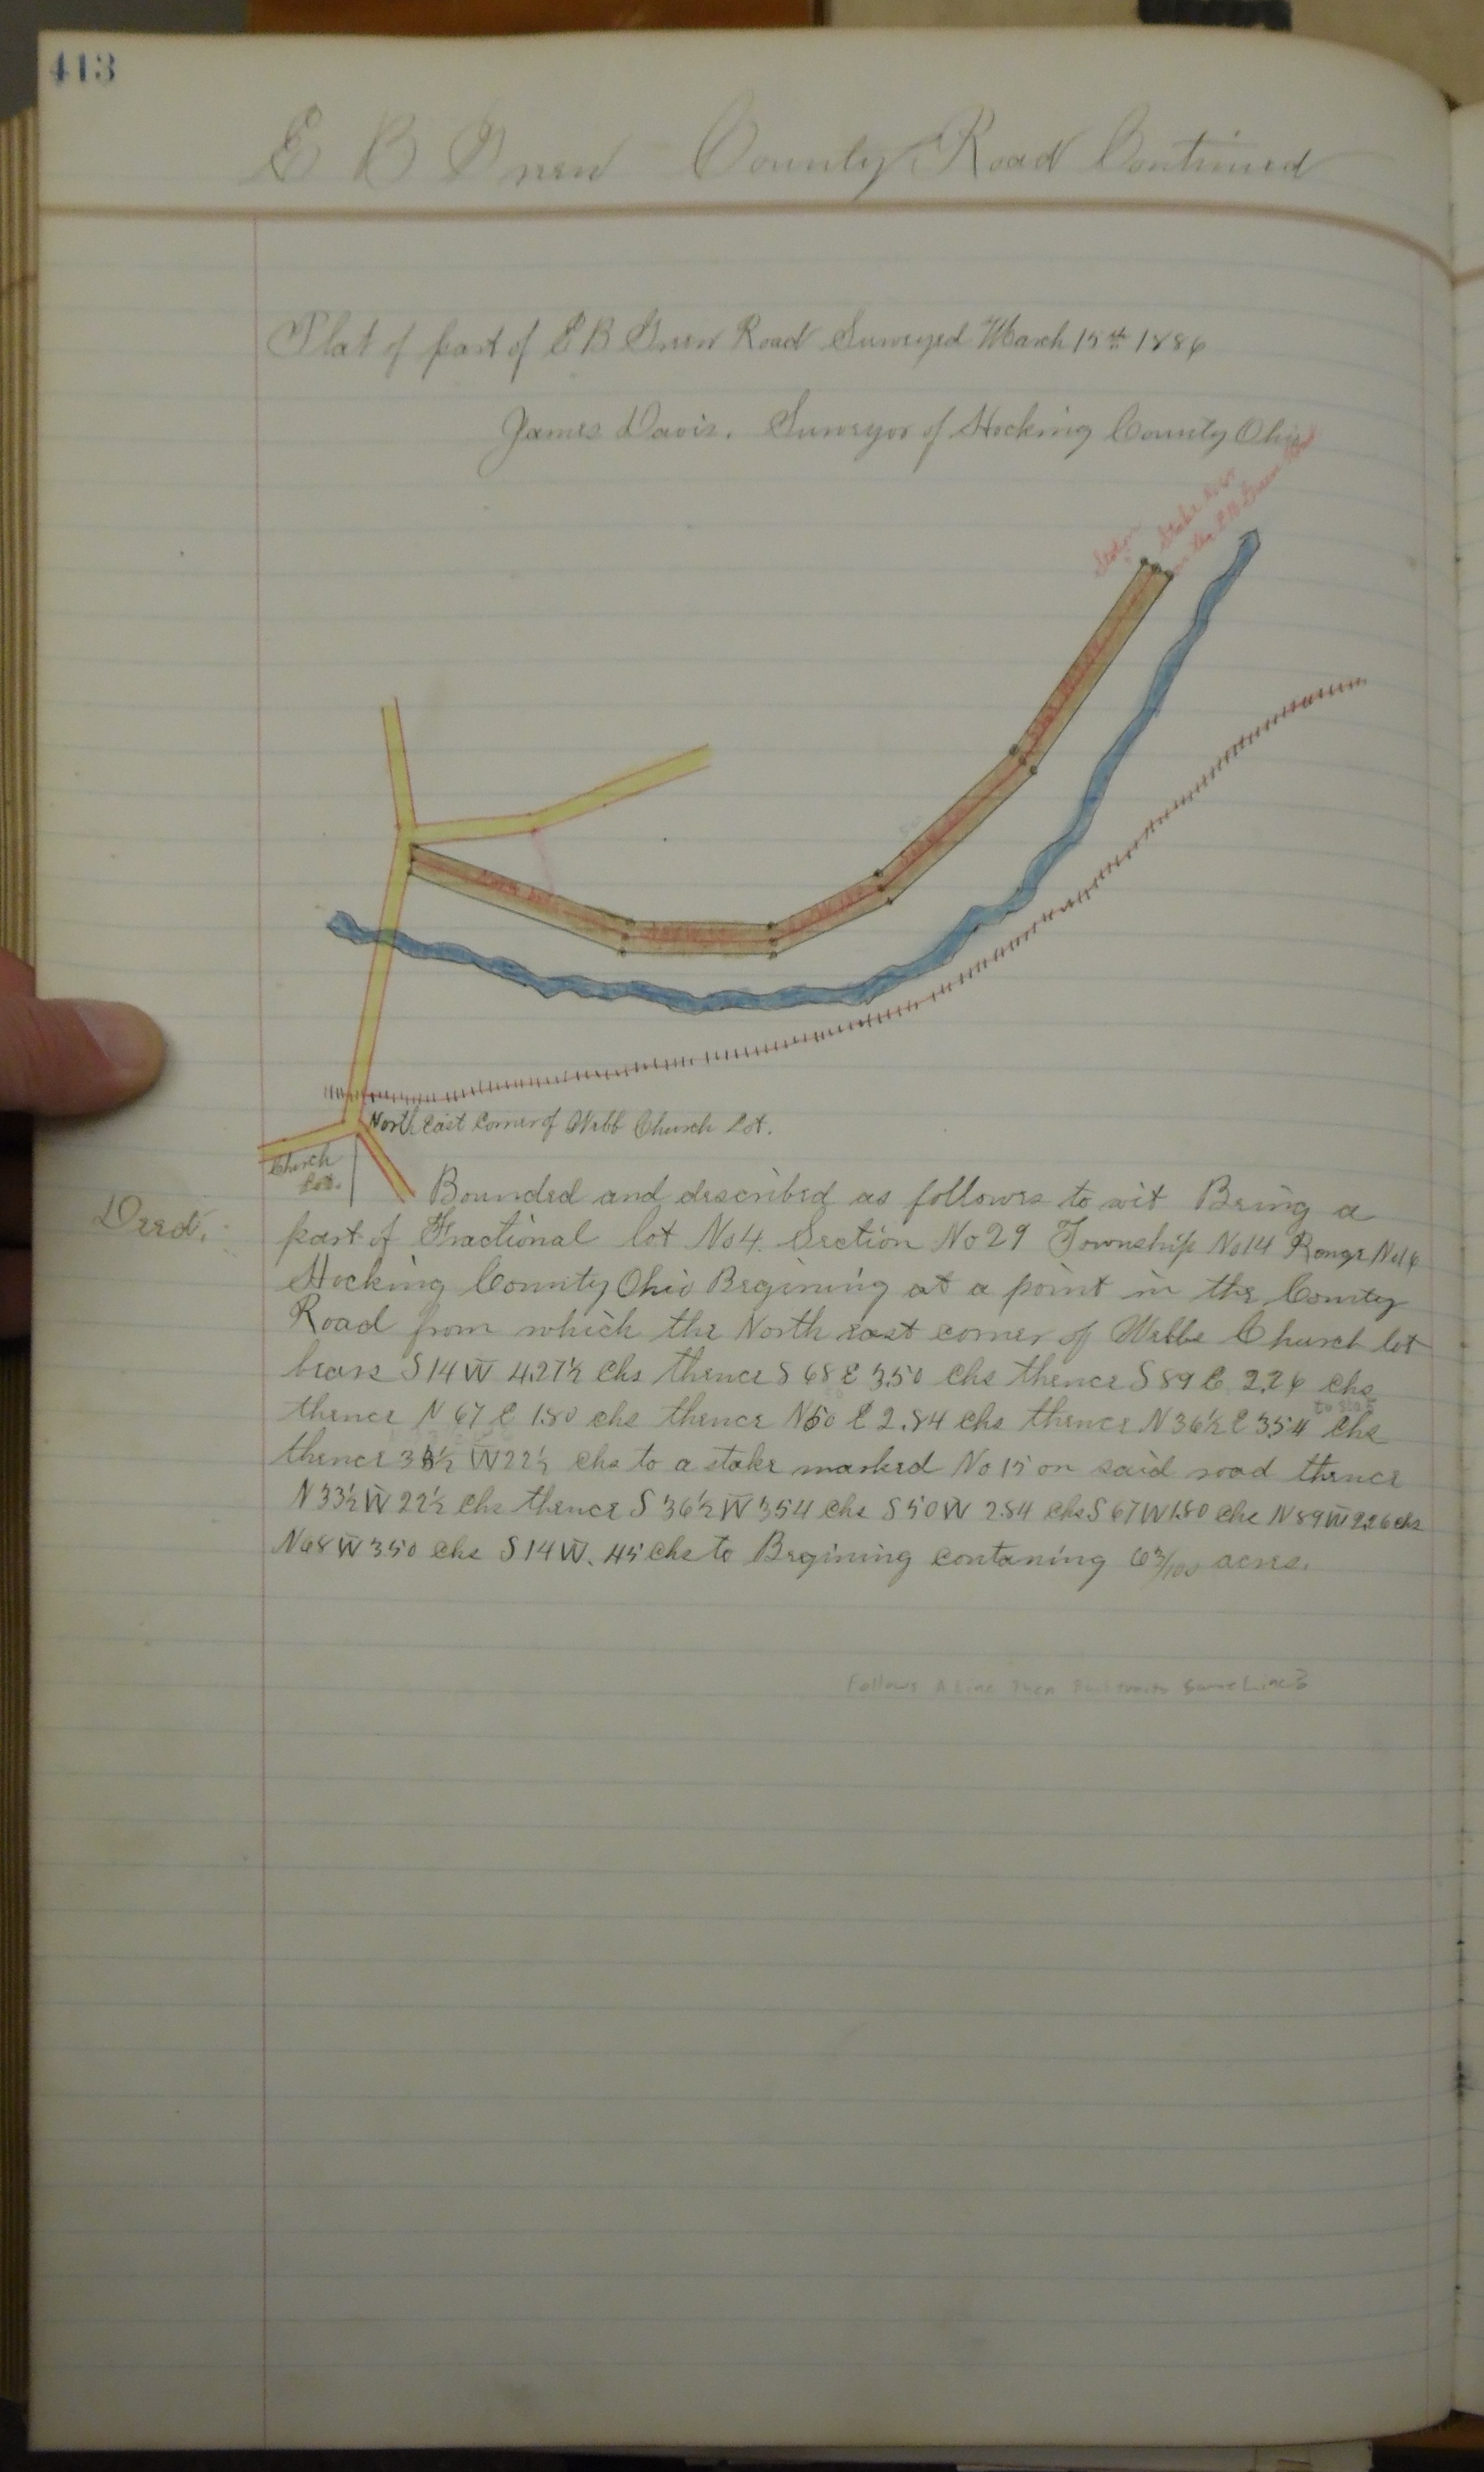 413
E B Green County Road Continued
Plat of part of E B Green Road Surveyed March 15th 1886
James Davis. Surveyor of Hocking County Ohio
Station Stake
on the E B Green Road
North East Corner of Webb Church Lot.
Church
Lot.
Deed.
Bounded and described as follows to wit Being a
part of Fractional lot No 4. Section No 29 Township No 14 Range No 16
Hocking County Ohio Begining at a point in the County
Road from which the North east corner of Webbs Church lot
bears S 14 W 4.27½ chs thence S 68 E 3.50 chs thence S 89 E 2.26 chs
thence N 67 E 1.80 chs thence N 50 E 2.84 chs thence N 36½ E 3.54 chs
thence 33½ W 22½ chs to a stake marked No 15 on said road thence
N 33½ W 22½ chs thence S 36½ W 3.54 chs S 50 W 2.84 chs S 67 W 1.80 chs N 89 W 2.26 chs
N 68 W 3.50 chs S 14 W. 45 chs to Begining contaning 63/100 acres.
Follows A Line Then Same Line?